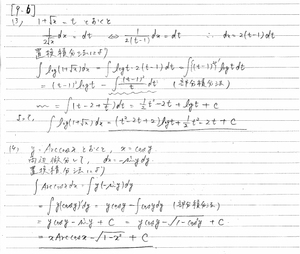 [9.6]
(3) 1+√x = t とおくと
1/(2√x) dx = dt ⇔ 1/(2(t-1)) dx = dt ∴ dx = 2(t-1)dt
置換積分法より
∫log(1+√x)dx = ∫logt·2(t-1)dt = ∫{(t-1)²}'logt dt
= (t-1)²logt - ∫(t-1)²/t dt (部分積分法)
〜 = ∫(t-2+1/t)dt = ½t²-2t+logt+C
∫log(1+√x)dx = (t²-2t+2)logt-½t²-2t+C
(4) y=Arccosxとおくと, x=cosy
dx=-sinydy
置換積分法より
∫Arccosxdx = ∫y(-siny)dy
= ∫y(cosy)'dy = ycosy-∫cosydy (部分積分法)
= ycosy-siny+C = ycosy-√(1-cos²y)+C
= xArccosx-√(1-x²)+C